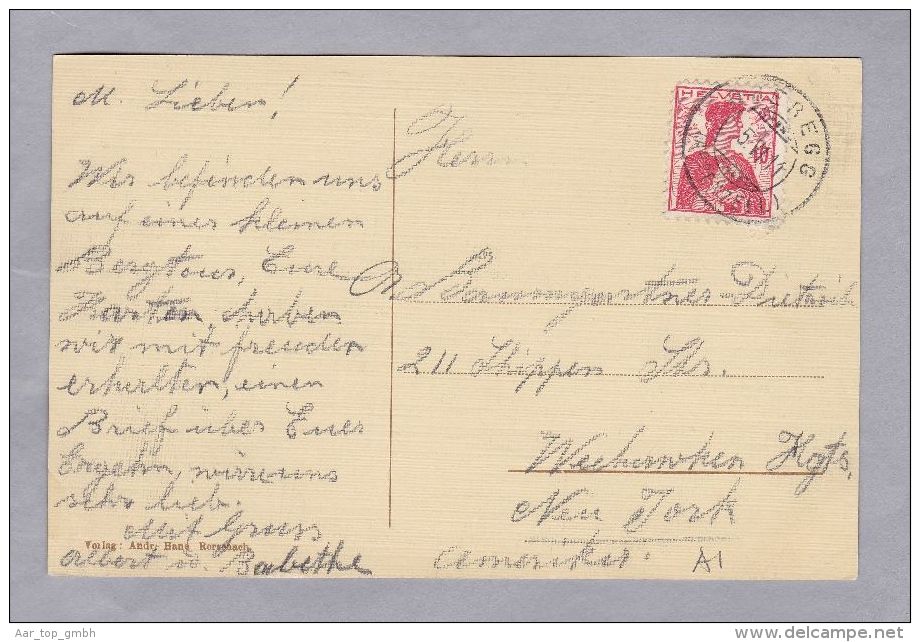 M. Lieben!
Wir befinden uns
auf einer kleinen
Bergtour, Eure
Karten, haben
wir mit freuden
erhalten, einen
Brief über Euer
Ergehn, wäre uns
sehr lieb.
Mit Gruss
Albert u. Babethe
Verlag: Andr. Hane Rorschach.
HELVETIA
10
EGG
Herrn
Baumgartner-Dietrich
211 Shippen Str.
Weehawken Hgts.
New York
Amerika.
A1
Aar_top_gmbh
delcampe.net